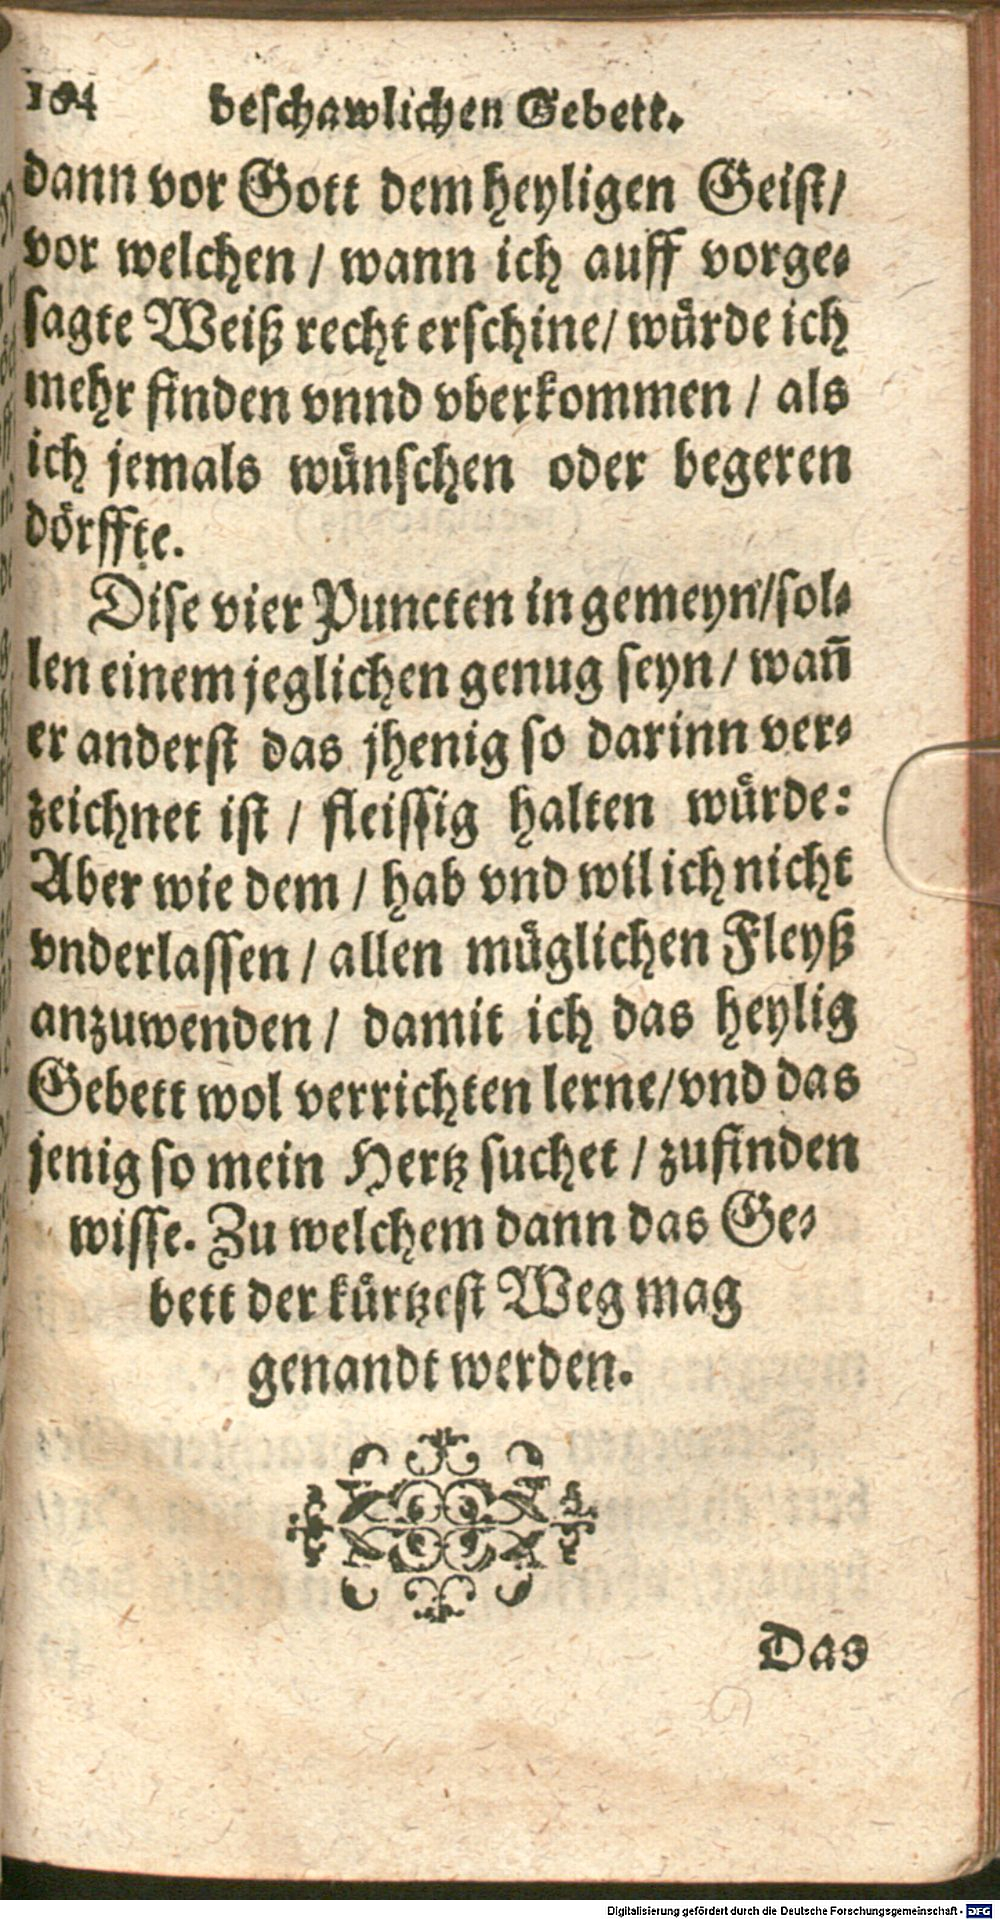 104 beschawlichen Gebett.
dann vor Gott dem heyligen Geist/
vor welchen / wann ich auff vorge-
sagte Weiß recht erschine/ wuͤrde ich
mehr finden vnnd vberkommen / als
ich jemals wuͤnschen oder begeren
doͤrffte.
Dise vier Puncten in gemeyn/sol-
len einem jeglichen genug seyn / wañ
er anderst das jhenig so darinn ver-
zeichnet ist / fleissig halten wuͤrde:
Aber wie dem / hab vnd wil ich nicht
vnderlassen / allen muͤglichen Fleyß
anzuwenden / damit ich das heylig
Gebett wol verrichten lerne/vnd das
jenig so mein Hertz suchet / zufinden
wisse. Zu welchem dann das Ge-
bett der kuͤrtzest Weg mag
genandt werden.
Das
Digitalisierung gefördert durch die Deutsche Forschungsgemeinschaft - DFG